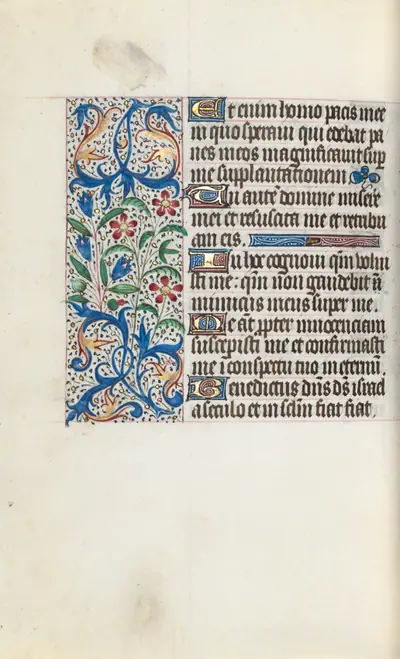 Et enim homo pacis mee
in quo speraui qui edebat pa
nes meos magnificauit sup
me supplantationem
Tu aute᷒ domine miser͛e
mei et resuscita me et retribu
am eis.
In hoc cognoui qm̄ volui
sti me: qm̄ non gaudebit
inimicus meus super me.
Me aūt ꝓpter innocenciam
suscepisti me et confirmasti
me i conspectu tuo in eternū.
Benedictus dn̄s ds̄ israel
a seculo et in sclm̄ fiat fiat.